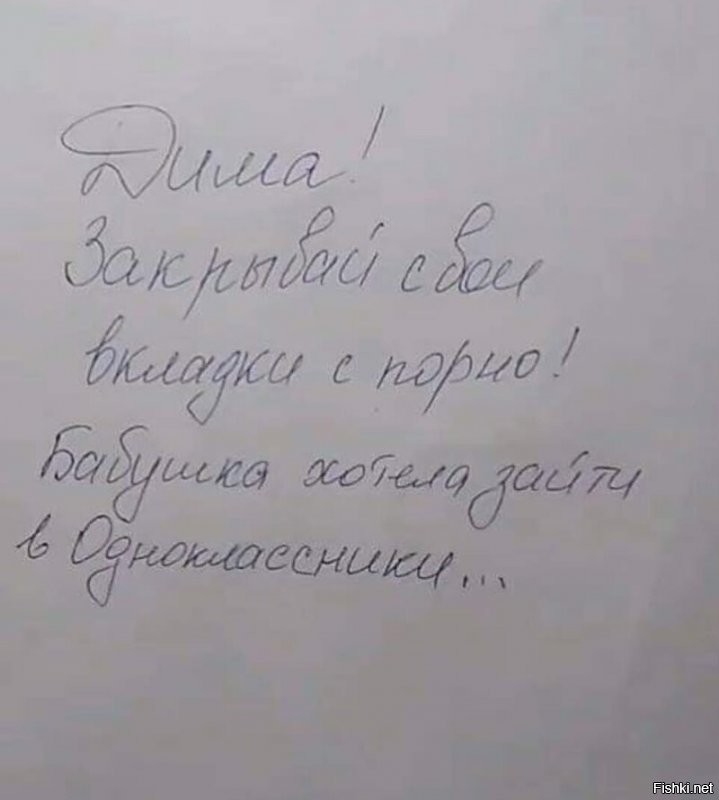 Дима!
Закрывай свои
вкладки с порно!
Бабушка хотела зайти
в Одноклассники...
Fishki.net